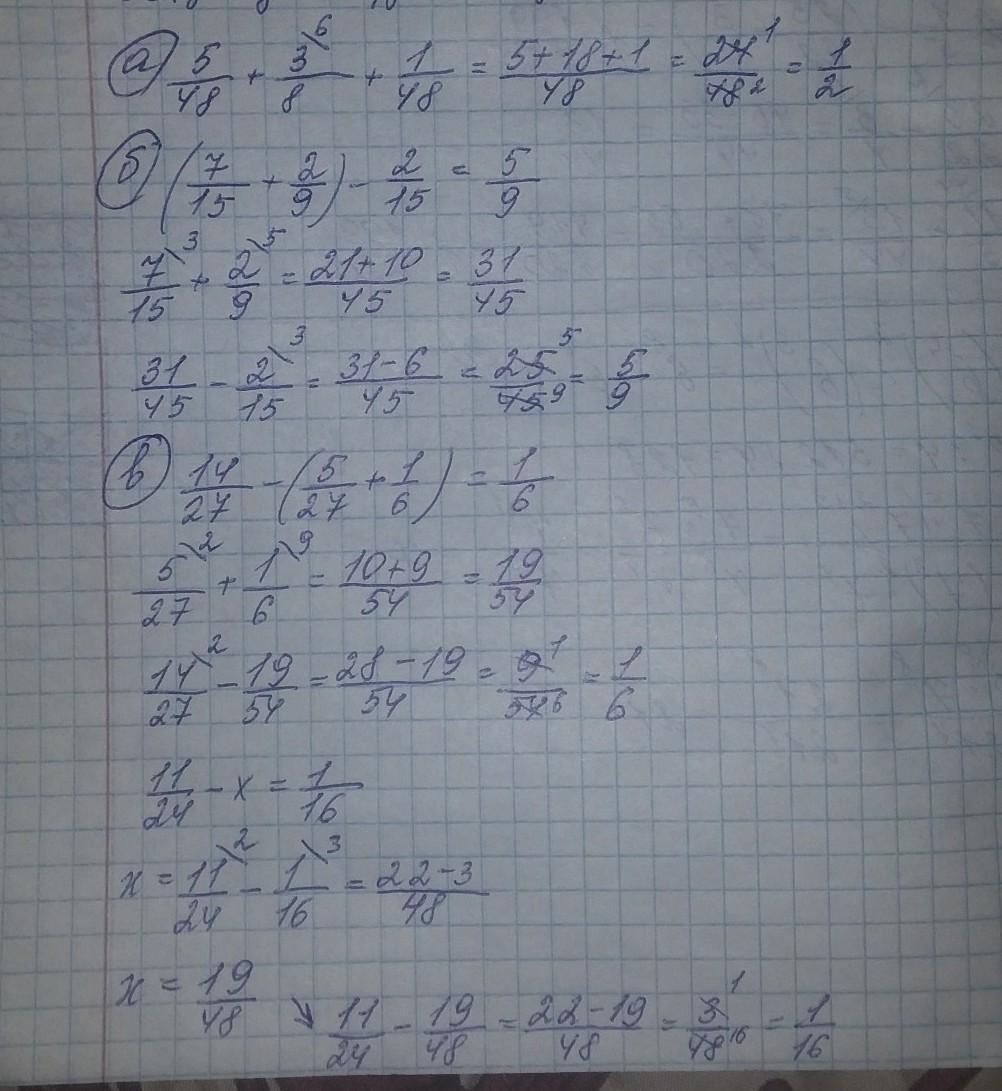 а) 5/48 + 3\6/8 + 1/48 = (5+18+1)/48 = 24 1/48 2 = 1/2
б) (7/15 + 2/9) - 2/15 = 5/9
7\3/15 + 2\5/9 = (21+10)/45 = 31/45
31/45 - 2\3/15 = (31-6)/45 = 25 5/45 9 = 5/9
в) 14/27 - (5/27 + 1/6) = 1/6
5\2/27 + 1\9/6 = (10+9)/54 = 19/54
14\2/27 - 19/54 = (28-19)/54 = 9 1/54 6 = 1/6
11/24 - x = 1/16
x = 11\2/24 - 1\3/16 = (22-3)/48
x = 19/48 ↘ 11/24 - 19/48 = (22-19)/48 = 3 1/48 16 = 1/16